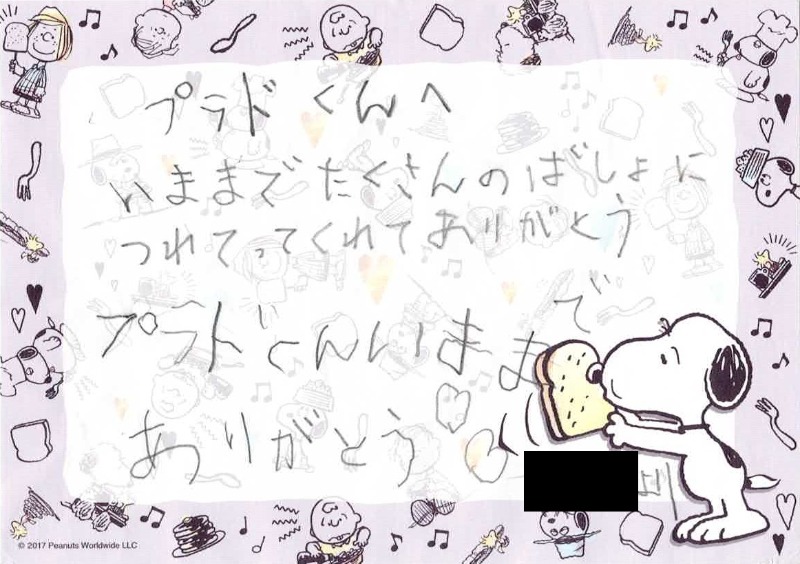 プラドくんへ
いままでたくさんのばしょに
つれてってくれてありがとう
プラドくんいままで
ありがとう
より
© 2017 Peanuts Worldwide LLC